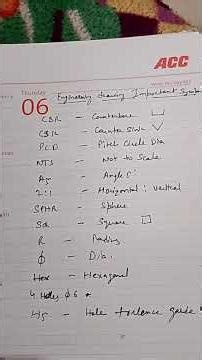 ACC
Thursday
06 Engineering drawing Important Symbol
CBR - Counterbore ⌴
CSK - Counter Sink ∨
PCD - Pitch Circle Dia
NTS - Not to Scale
- Angle
2:1 - Horizontal : Vertical
SPHR - Sphere
SQ - Square □
R - Radius
ϕ - Dia.
Hex - Hexagonal
4 Holes ϕ6
H5 - Hole tolerance grade